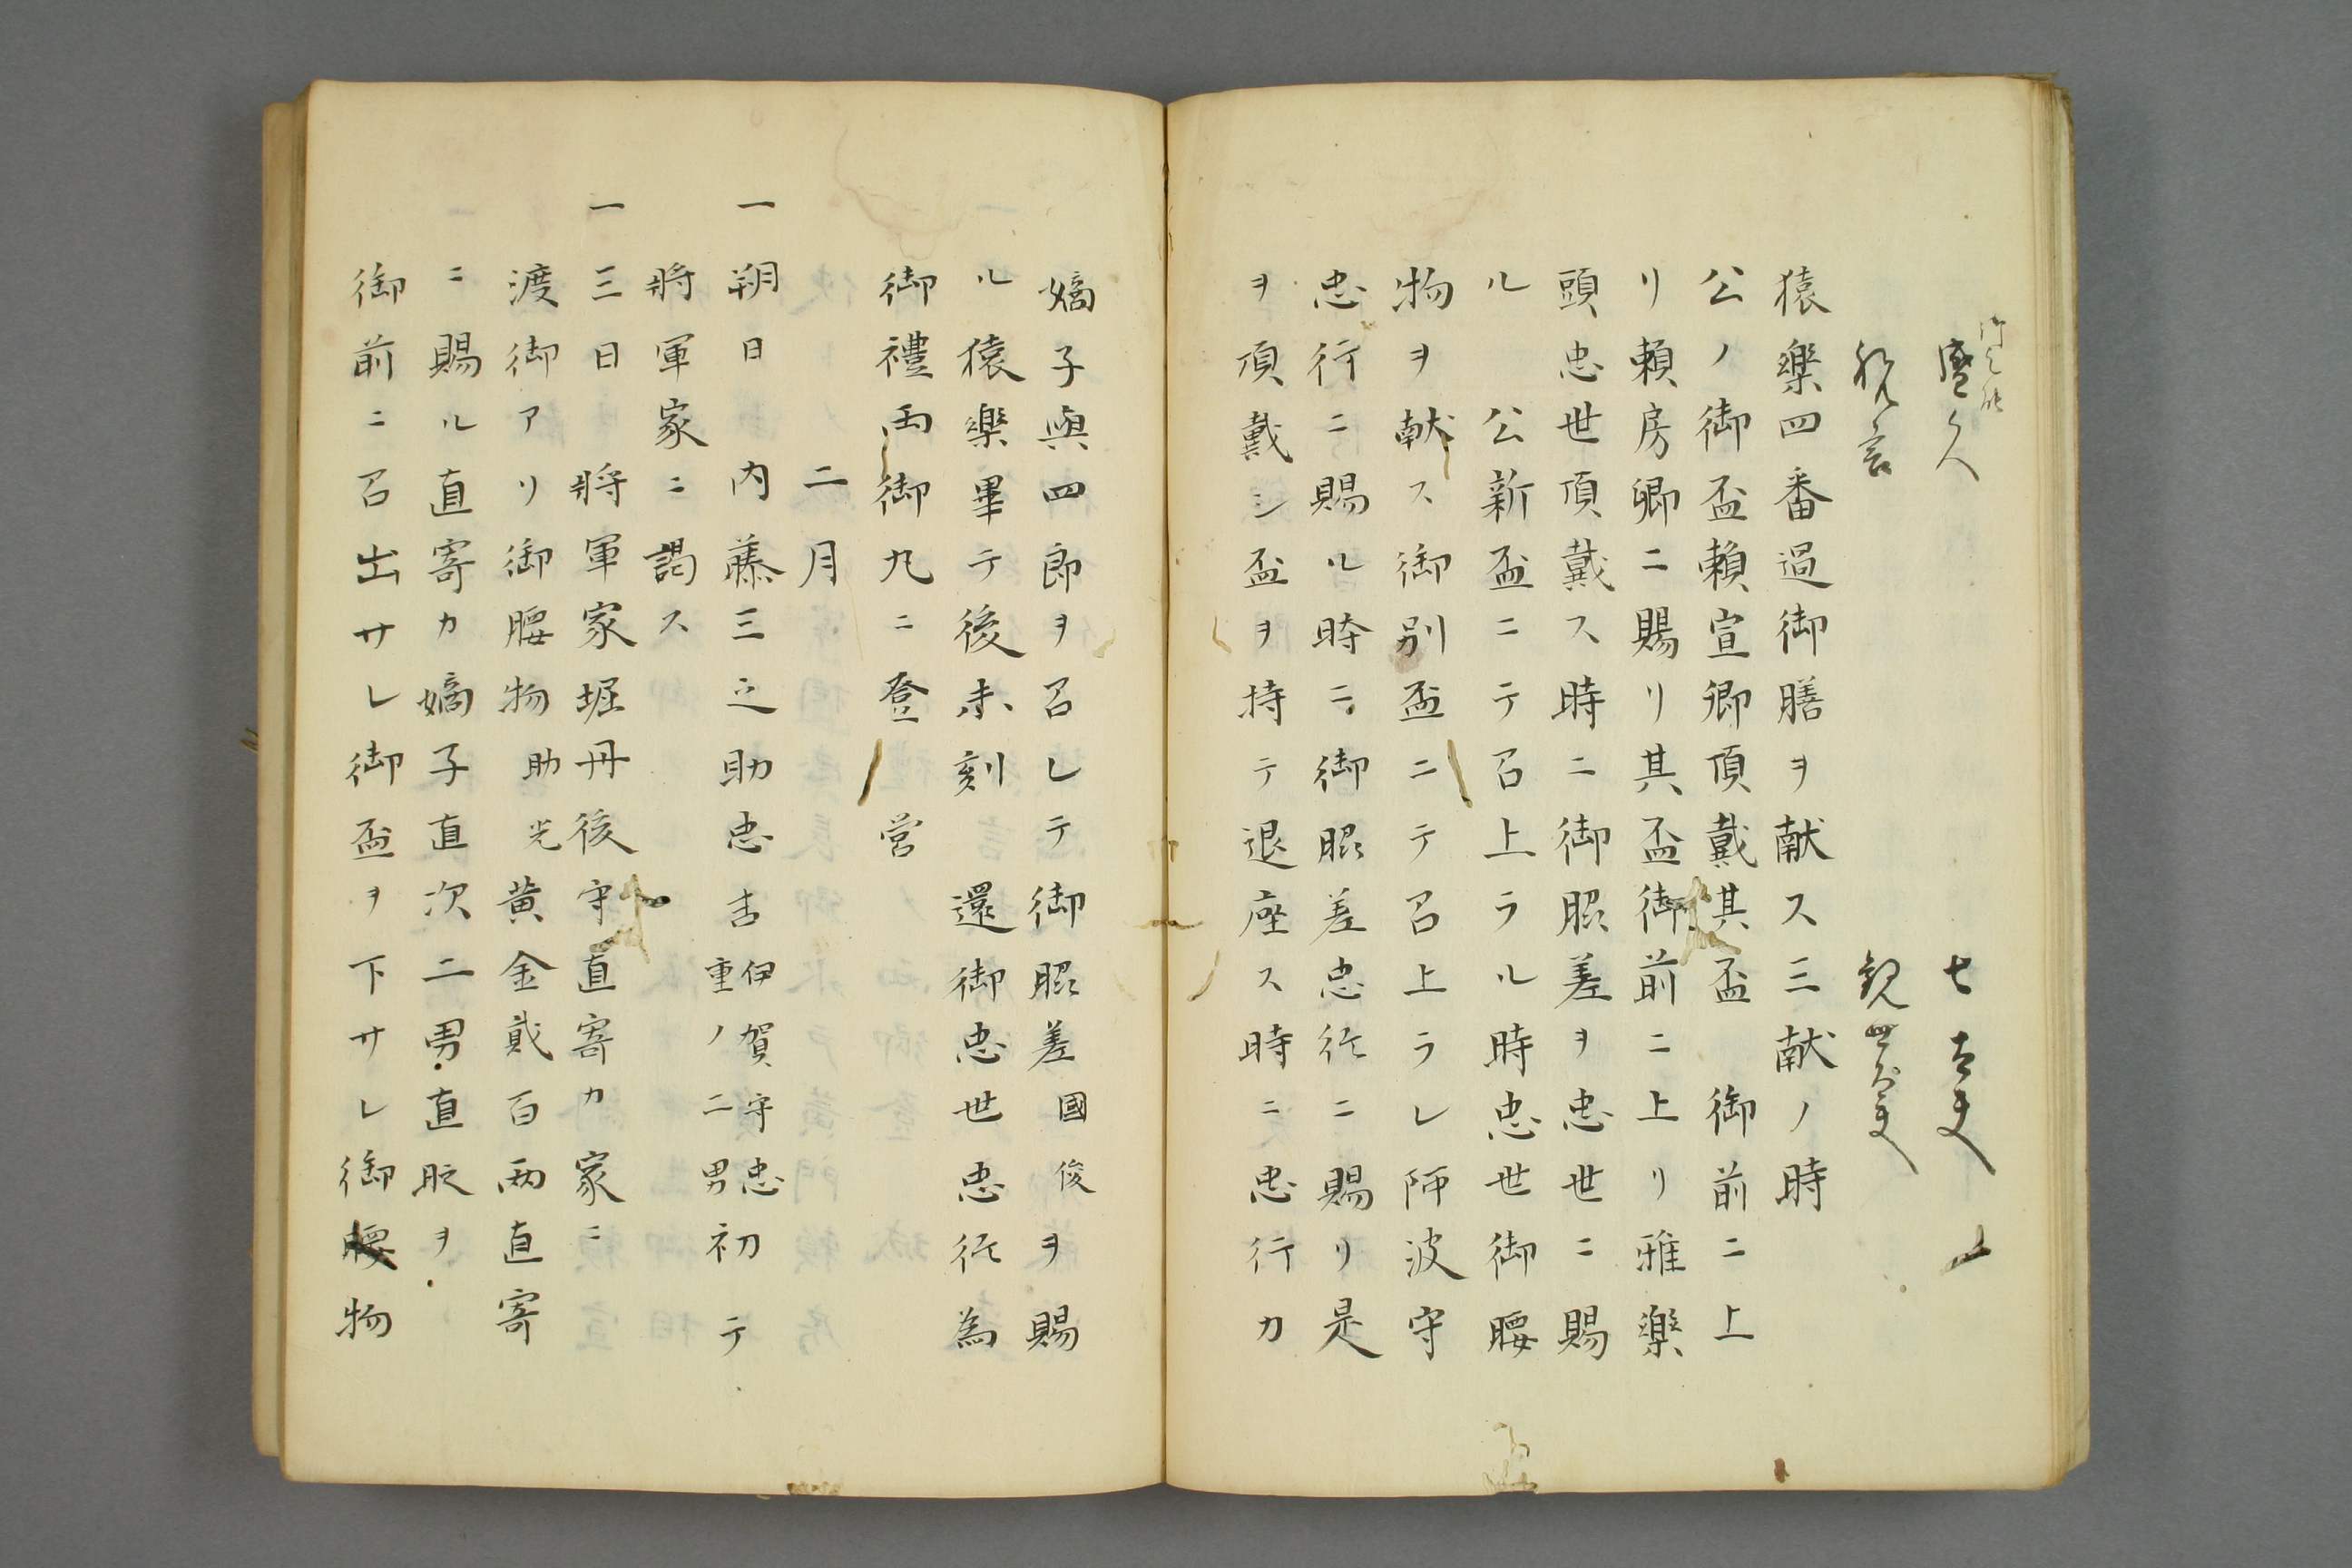 七太夫
祝言 観世太夫
猿樂四番過御膳ヲ献ス三献ノ時
公ノ御盃頼宣卿頂戴其盃 御前ニ上
リ頼房卿ニ賜リ其盃御前ニ上リ雅樂
頭忠世頂戴ス時ニ御脇差ヲ忠世ニ賜
ル 公新盃ニテ召上ラル時忠世御腰
物ヲ献ス御別盃ニテ召上ラレ阿波守
忠行ニ賜ル時ニ御脇差忠行ニ賜リ是
ヲ頂戴シ盃ヲ持テ退座ス時ニ忠行カ
嫡子與四郎ヲ召レテ御脇差國俊ヲ賜
ル猿樂畢テ後未刻 還御忠世忠行為
御禮両御丸ニ登 営
二月
一朔日内藤三之助忠吉伊賀守忠重ノ二男初テ
將軍家ニ謁ス
一三日 將軍家堀丹後守直寄カ家ニ
渡御アリ御腰物助光黄金貳百両直寄
ニ賜ル直寄カ嫡子直次二男直時ヲ
御前ニ召出サレ御盃ヲ下サレ御腰物